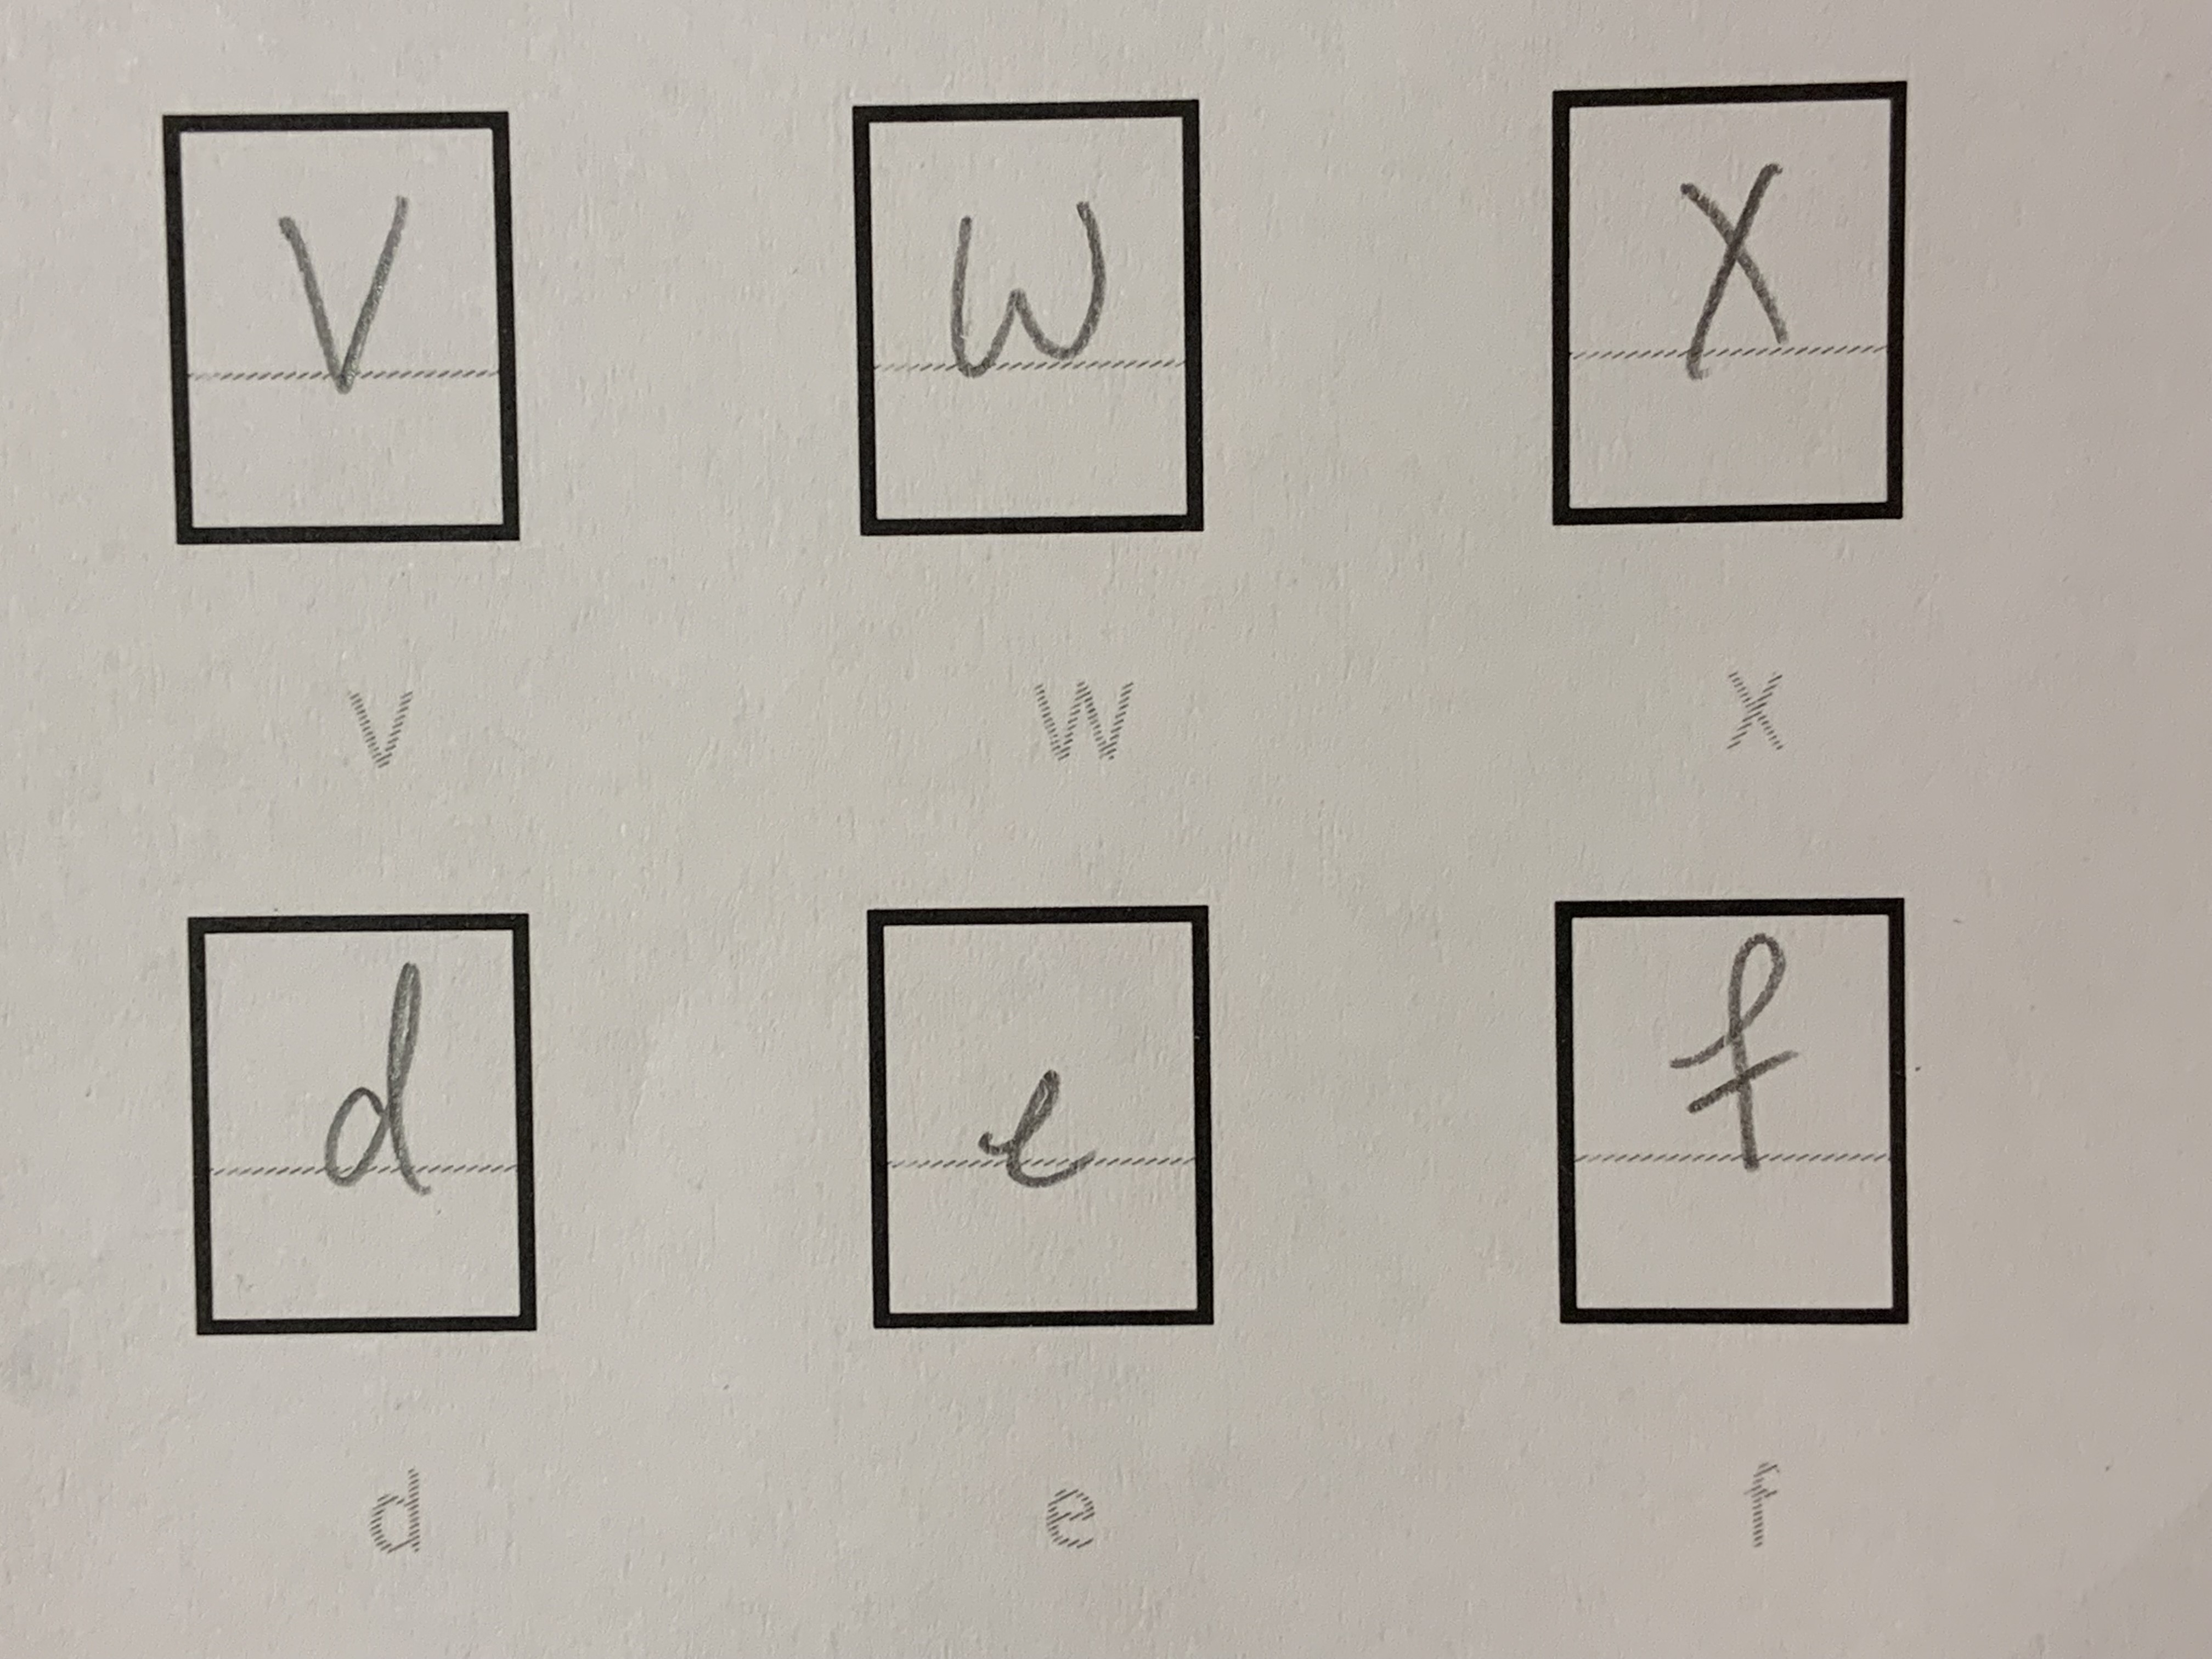 V W X
V W X
d e f
d e f